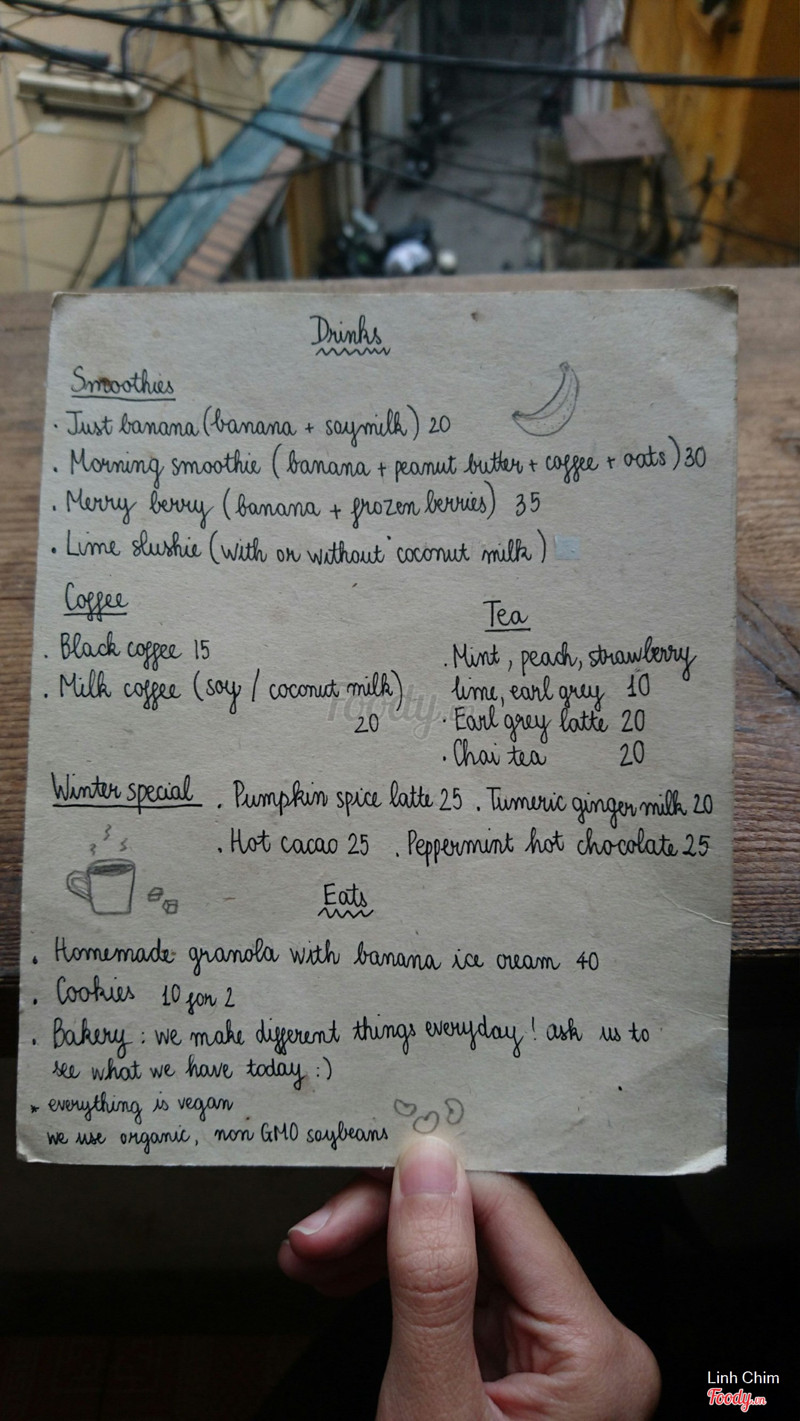 Drinks
Smoothies
· Just banana (banana + soymilk) 20
· Morning smoothie (banana + peanut butter + coffee + oats) 30
· Merry berry (banana + frozen berries) 35
· Lime slushie (with or without coconut milk)
Coffee
· Black coffee 15
· Milk coffee (soy / coconut milk)
20
Tea
· Mint, peach, strawberry
lime, earl grey 10
· Earl grey latte 20
· Chai tea 20
Winter special · Pumpkin spice latte 25 · Tumeric ginger milk 20
· Hot cacao 25 · Peppermint hot chocolate 25
Eats
· Homemade granola with banana ice cream 40
· Cookies 10 for 2
· Bakery : we make different things everyday! ask us to
see what we have today :)
* everything is vegan
we use organic, non GMO soybeans
Foody.vn
Linh Chim
Foody.vn